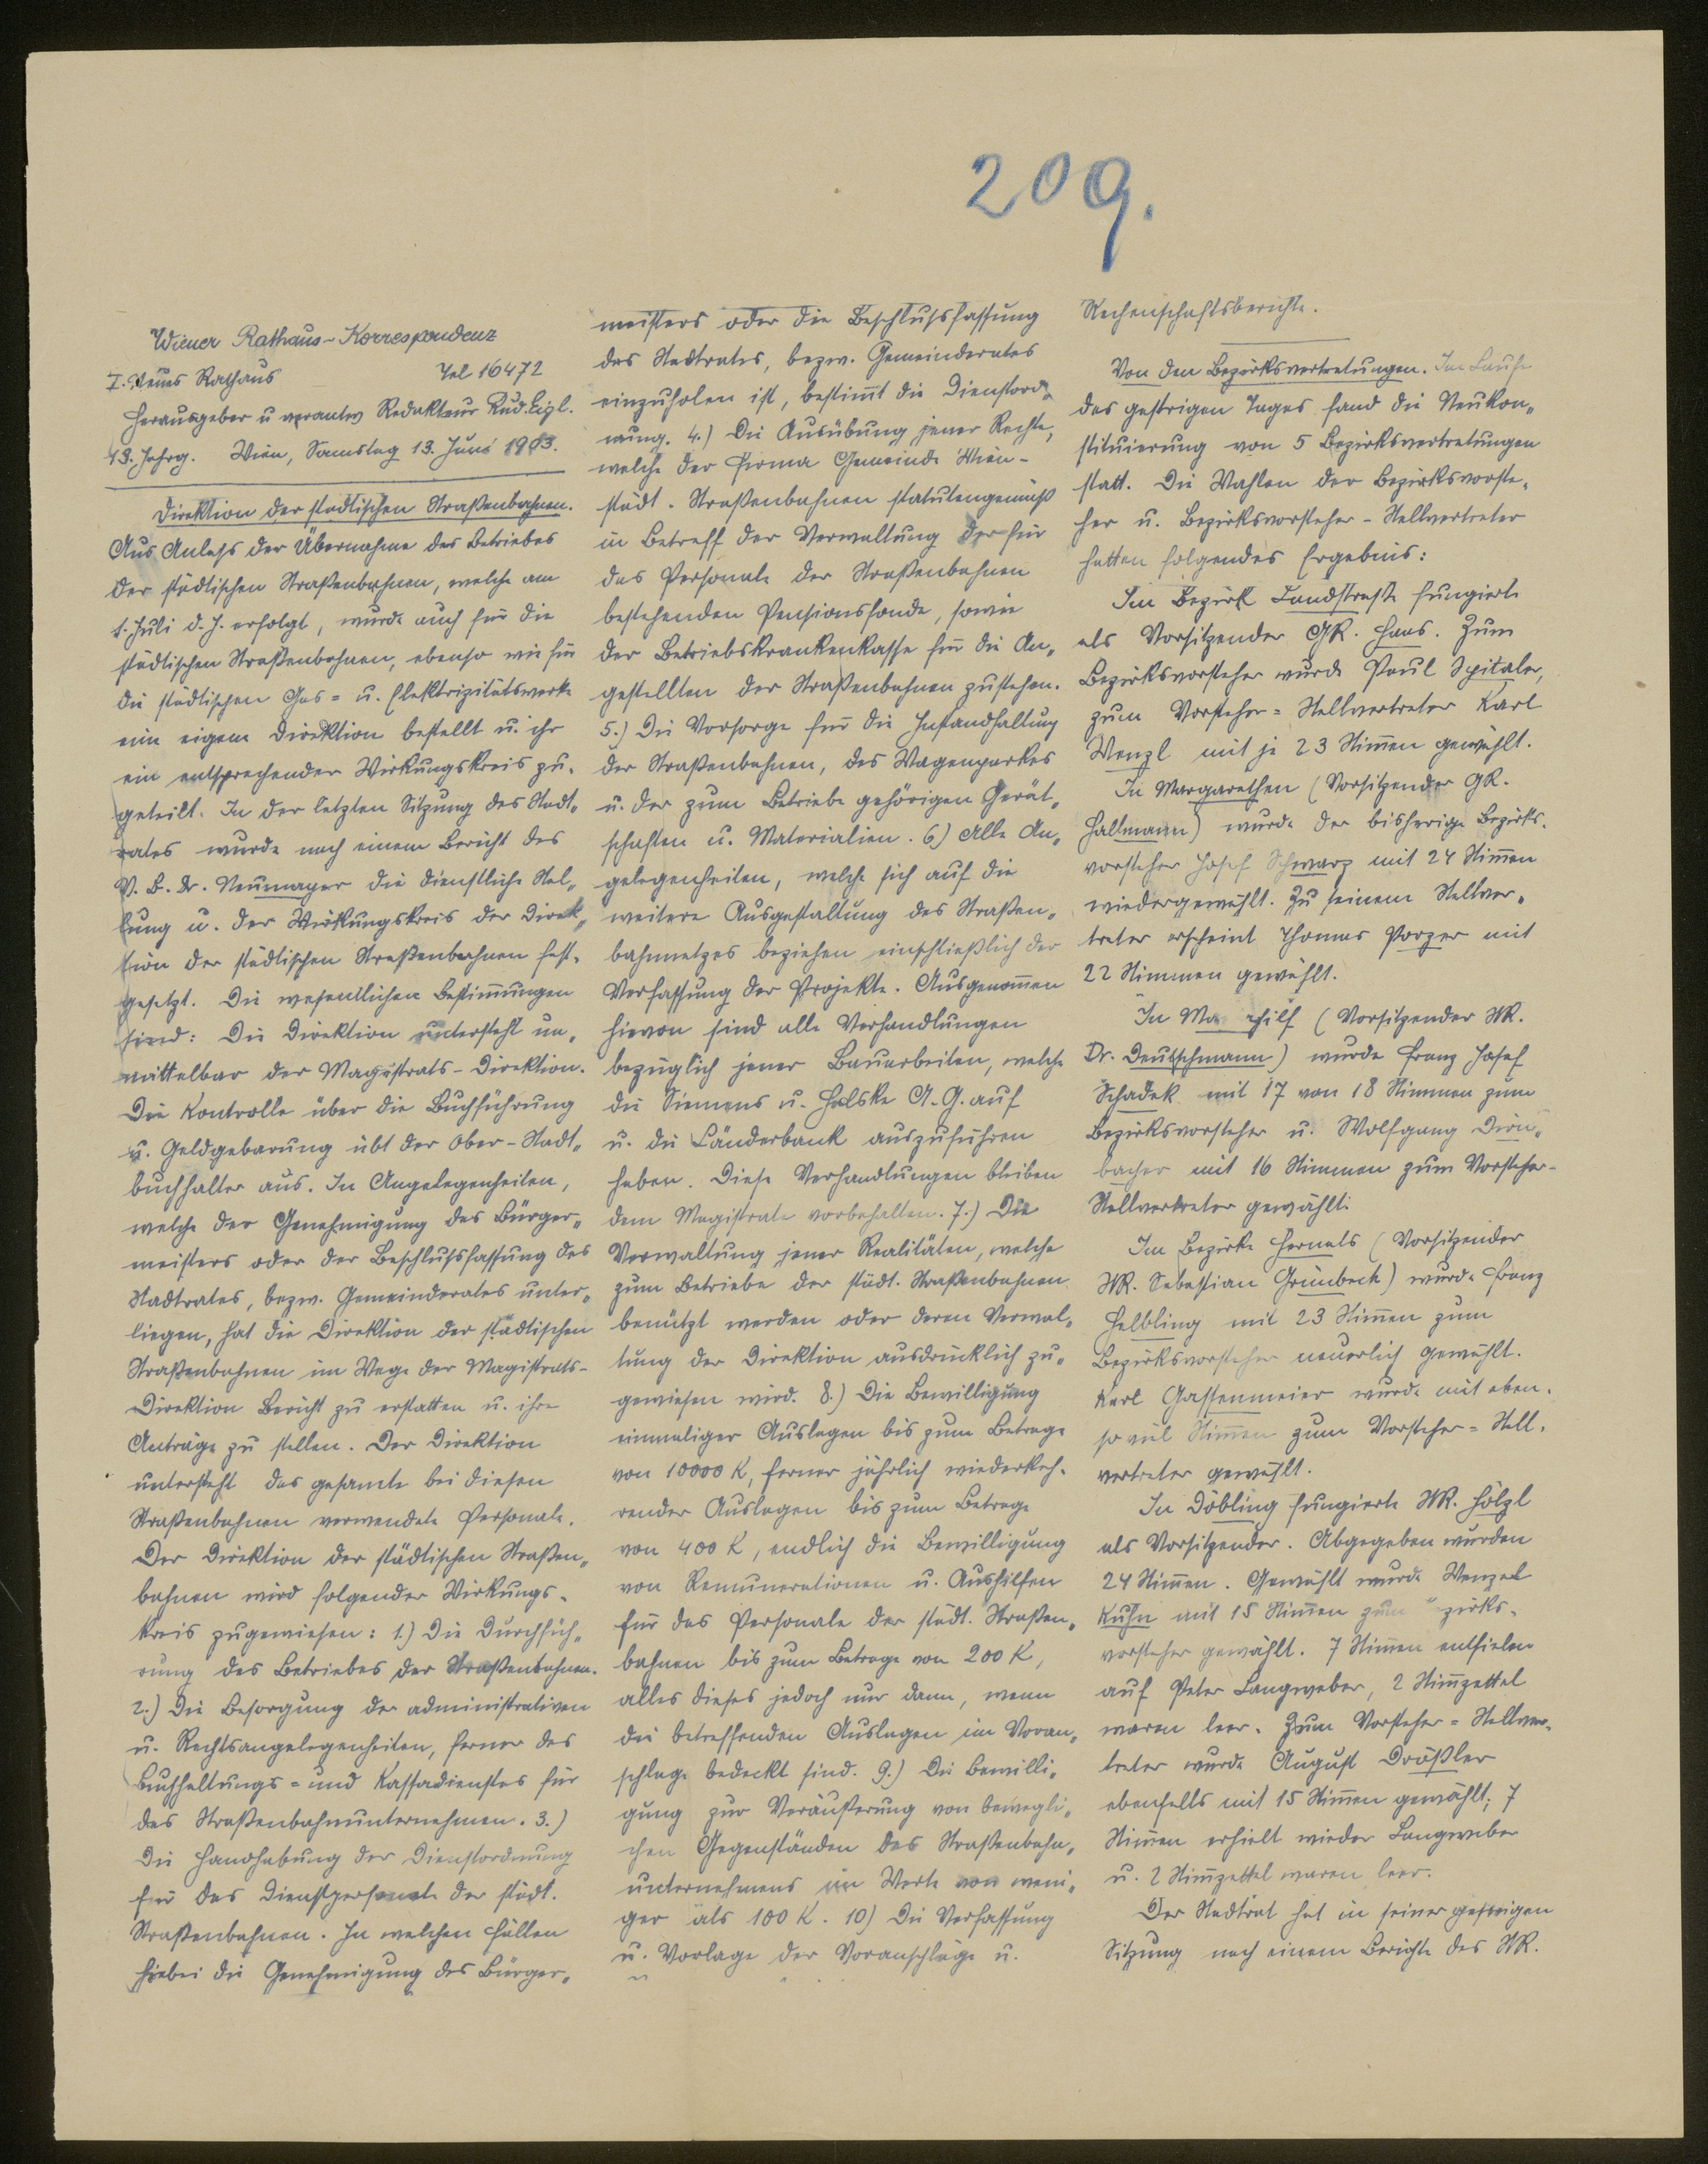 209.
Wiener Rathaus-Korrespondenz
I. Neues Rathaus Tel 16472
Herausgeber u verantw Redakteur Rud. Eigl.
13. Jahrg. Wien, Samstag 13. Juni 1903.
Direktion der städtischen Straßenbahnen.
Aus Anlass der Übernahme des Betriebes
der städtischen Straßenbahnen, welche am
1. Juli d. J. erfolgt, wurde auch für die
städtischen Straßenbahnen, ebenso wie für
die städtischen Gas= u. Elektrizitätswerke
eine eigene Direktion bestellt u. ihr
ein entsprechender Wirkungskreis zu-
geteilt. In der letzten Sitzung des Stadt-
rates wurde nach einem Bericht des
V. B. Dr. Neumayer die dienstliche Stel-
lung u. der Wirkungskreis der Direk-
tion der städtischen Straßenbahnen fest-
gesetzt. Die wesentlichen Bestim̅ungen
sind: Die Direktion untersteht un-
mittelbar der Magistrats-Direktion.
Die Kontrolle über die Buchführung
u. Geldgebarung übt der Ober-Stadt-
buchhalter aus. In Angelegenheiten,
welche der Genehmigung des Bürger-
meisters oder der Beschlußfassung des
Stadtrates, bezw. Gemeinderates unter-
liegen, hat die Direktion der städtischen
Straßenbahnen im Wege der Magistrats-
Direktion Bericht zu erstatten u. ihre
Anträge zu stellen. Der Direktion
untersteht das gesamte bei diesen
Straßenbahnen verwendete Personale.
Der Direktion der städtischen Straßen-
bahnen wird folgender Wirkungs-
kreis zugewiesen: 1.) Die Durchfüh-
rung des Betriebes der Straßenbahnen.
2.) Die Besorgung der administrativen
u. Rechtsangelegenheiten, ferner des
Buchhaltungs=und Kassadienstes für
das Straßenbahnunternehmen. 3.)
Die Handhabung der Dienstordnung
für das Dienstpersonale der städt.
Straßenbahnen. In welchen Fällen
hiebei die Genehmigung des Bürger-
meisters oder die Beschlußfassung
des Stadtrates, bezw. Gemeinderates
einzuholen ist, bestim̅t die Dienstord-
nung. 4.) Die Ausübung jener Rechte,
welche der Firma Gemeinde Wien-
städt. Straßenbahnen statutengemäß
in Betreff der Verwaltung der für
das Personale der Straßenbahnen
bestehenden Pensionsfonde, sowie
der Betriebskrankenkasse für die An-
gestellten der Straßenbahnen zustehen.
5.) Die Vorsorge für die Instandhaltung
der Straßenbahnen, des Wagenparkes
u. der zum Betriebe gehörigen Gerät-
schaften u. Materialien. 6) Alle An-
gelegenheiten, welche sich auf die
weitere Ausgestaltung des Straßen-
bahnnetzes beziehen einschließlich der
Verfassung der Projekte. Ausgenom̅en
hievon sind alle Verhandlungen
bezüglich jener Bauarbeiten, welche
die Siemens u. Halske A.G. auf
u. die Länderbank auszuführen
haben. Diese Verhandlungen bleiben
dem Magistrate vorbehalten. 7.) Die
Verwaltung jener Realitäten, welche
zum Betriebe der städt. Straßenbahnen
benützt werden oder deren Verwal-
tung der Direktion ausdrücklich zu-
gewiesen wird. 8.) Die Bewilligung
einmaliger Auslagen bis zum Betrage
von 10000 K, ferner jährlich wiederkeh-
render Auslagen bis zum Betrage
von 400 K, endlich die Bewilligung
von Remunerationen u. Aushilfen
für das Personale der städt. Straßen-
bahnen bis zum Betrage von 200 K,
alles dieses jedoch nur dann, wenn
die betreffenden Auslagen im Voran-
schlage bedeckt sind. 9.) Die Bewilli-
gung zur Veräußerung von bewegli-
chen Gegenständen des Straßenbahn-
unternehmens im Werte von weni-
ger als 100 K. 10) Die Verfassung
u. Vorlage der Voranschläge u.
Rechenschaftsberichte.
Von den Bezirksvertretungen. Im Laufe
des gestrigen Tages fand die Neukon-
stituierung von 5 Bezirksvertretungen
statt. Die Wahlen der Bezirksvorste-
her u. Bezirksvorsteher-Stellvertreter
hatten folgendes Ergebnis:
Im Bezirk Landstraße fungierte
als Vorsitzender GR. Haas. Zum
Bezirksvorsteher wurde Paul Spitaler,
zum Vorsteher=Stellvertreter Karl
Wenzl mit je 23 Stim̅en gewählt.
In Margarethen (Vorsitzender GR.
Hallmann) wurde der bisherige Bezirks-
vorsteher Josef Schwarz mit 24 Stim̅en
wiedergewählt. Zu seinem Stellver-
treter erscheint Thomas Porzer mit
22 Stimmen gewählt.
In Ma hilf (Vorsitzender StR.
Dr. Deutschmann) wurde Franz Josef
Schadek mit 17 von 18 Stimmen zum
Bezirksvorsteher u. Wolfgang Dirn-
bacher mit 16 Stimmen zum Vorsteher-
Stellvertreter gewählt.
Im Bezirke Hernals (Vorsitzender
StR. Sebastian Grünbeck) wurde Franz
Helbling mit 23 Stim̅en zum
Bezirksvorsteher neuerlich gewählt.
Karl Gassenmeier wurde mit eben-
so viel Stim̅en zum Vorsteher=Stell-
vertreter gewählt.
In Döbling fungierte StR. Hölzl
als Vorsitzender. Abgegeben wurden
24 Stim̅en. Gewählt wurde Wenzel
Kuhn mit 15 Stim̅en zum zirks-
vorsteher gewählt. 7 Stim̅en entfielen
auf Peter Langweber, 2 Stim̅zettel
waren leer. Zum Vorsteher=Stellver-
treter wurde August Dräßler
ebenfalls mit 15 Stim̅en gewählt; 7
Stim̅en erhielt wieder Langweber
u. 2 Stim̅zettel waren leer.
Der Stadtrat hat in seiner gestrigen
Sitzung nach einem Berichte des StR.